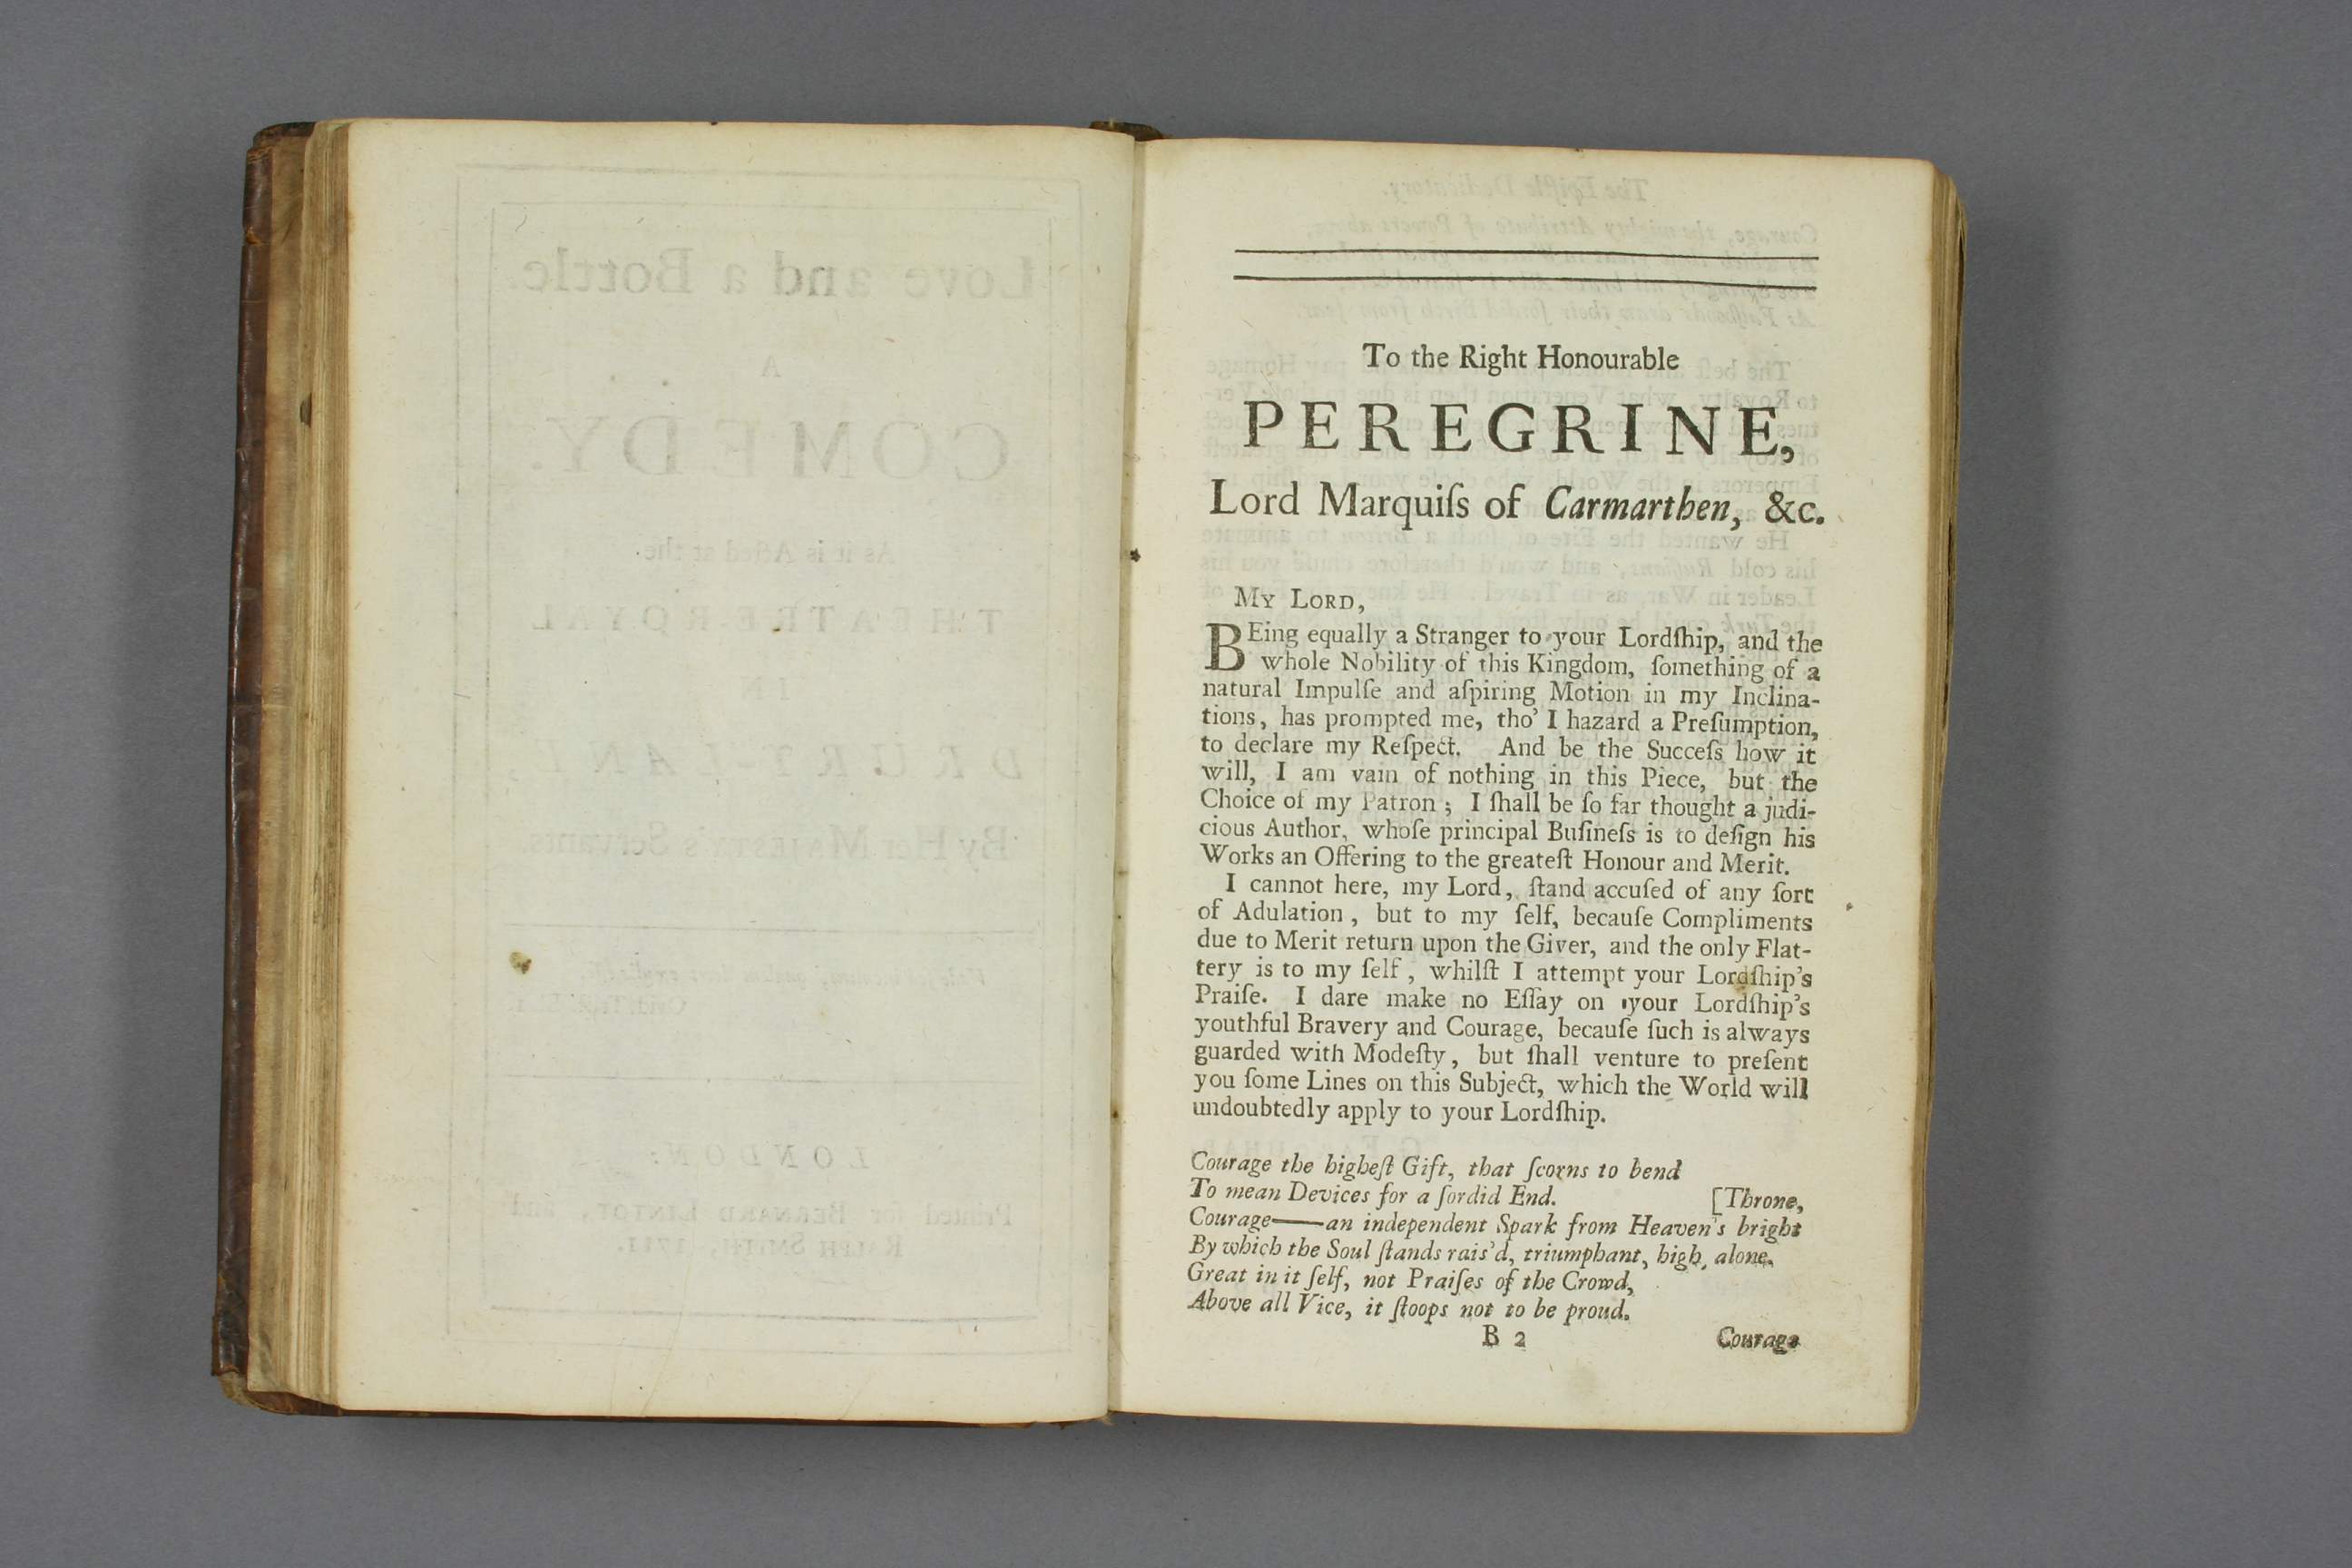 To the Right Honourable
PEREGRINE,
Lord Marquiſs of Carmarthen, &c.
MY LORD,
BEing equally a Stranger to your Lordſhip, and the
whole Nobility of this Kingdom, ſomething of a
natural Impulſe and aſpiring Motion in my Inclina-
tions, has prompted me, tho' I hazard a Preſumption,
to declare my Reſpect. And be the Succeſs how it
will, I am vain of nothing in this Piece, but the
Choice of my Patron; I ſhall be ſo far thought a judi-
cious Author, whoſe principal Buſineſs is to deſign his
Works an Offering to the greateſt Honour and Merit.
I cannot here, my Lord, ſtand accuſed of any ſort
of Adulation, but to my ſelf, becauſe Compliments
due to Merit return upon the Giver, and the only Flat-
tery is to my ſelf, whilſt I attempt your Lordſhip's
Praiſe. I dare make no Eſſay on your Lordſhip's
youthful Bravery and Courage, becauſe ſuch is always
guarded with Modeſty, but ſhall venture to preſent
you ſome Lines on this Subject, which the World will
undoubtedly apply to your Lordſhip.
Courage the higheſt Gift, that ſcorns to bend
To mean Devices for a ſordid End. [Throne,
Courage—an independent Spark from Heaven's bright
By which the Soul ſtands rais'd, triumphant, high, alone.
Great in it ſelf, not Praiſes of the Crowd,
Above all Vice, it ſtoops not to be proud.
B 2 Courage